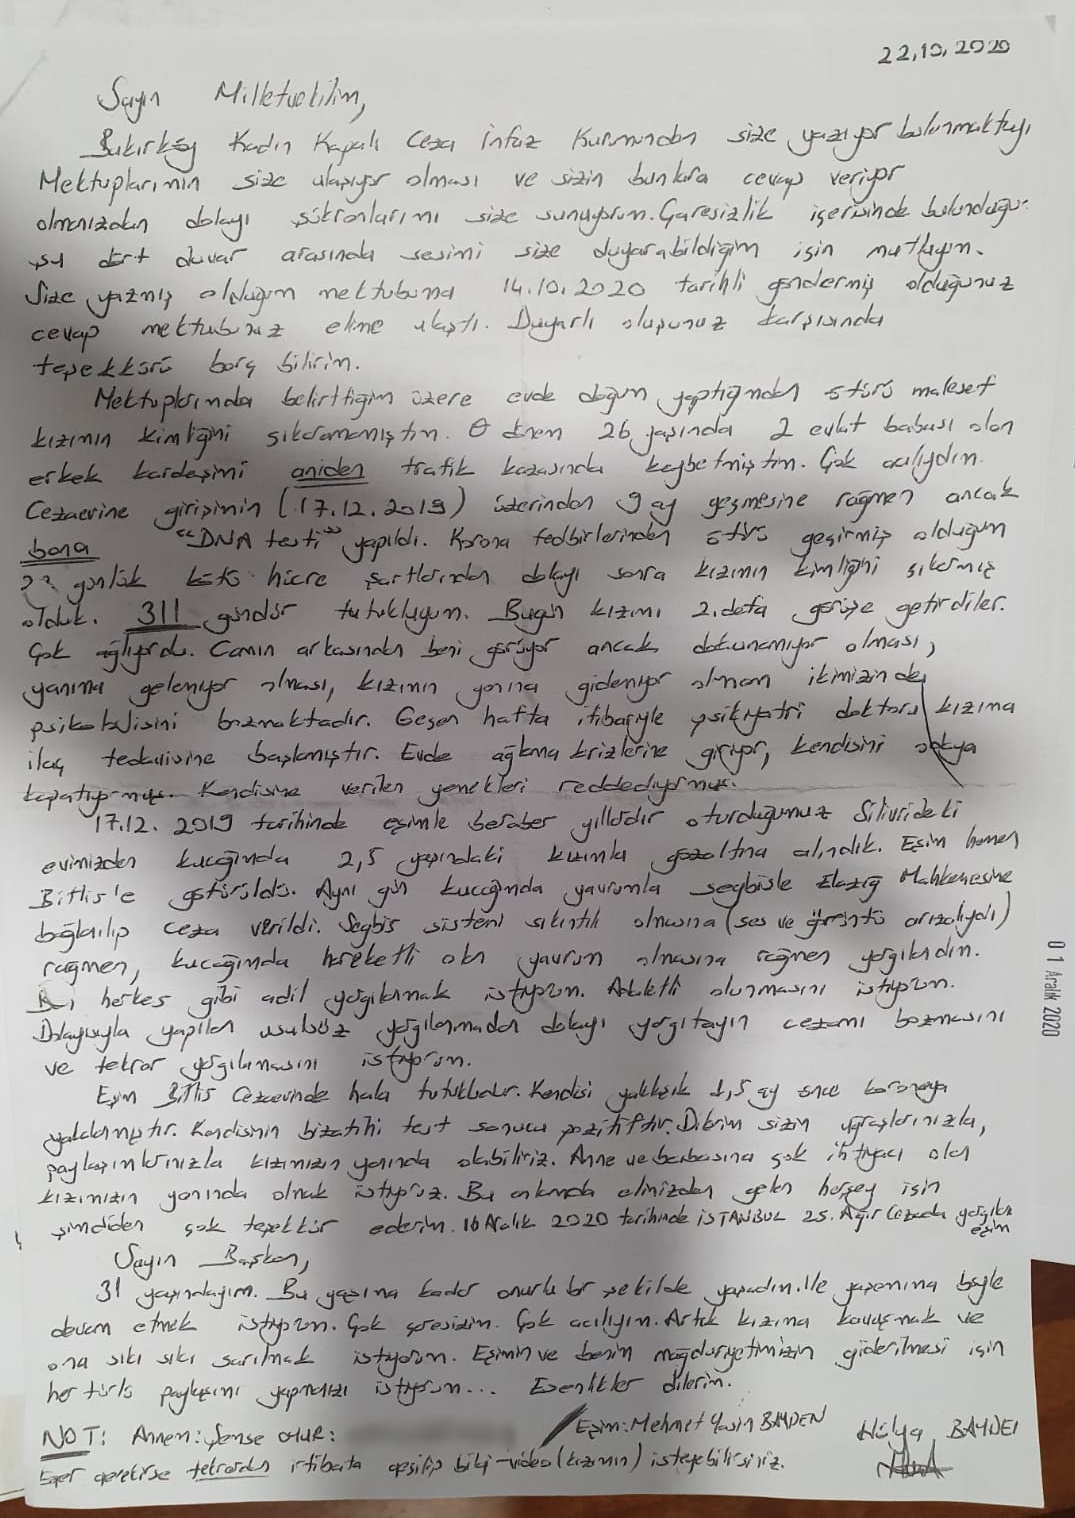 22.10.2020
Sayın Milletvekilim,
Bakırköy Kadın Kapalı Ceza İnfaz Kurumundan size yazıyor bulunmaktayı
Mektuplarımın size ulaşıyor olması ve sizin bunlara cevap veriyor
olmanızdan dolayı şükranlarımı size sunuyorum. Çaresizlik içerisinde bulunduğu
şu dört duvar arasında sesimi size duyarabildiğim için mutluyum.
Size yazmış olduğum mektubuma 14.10.2020 tarihli göndermiş olduğunuz
cevap mektubunuz elime ulaştı. Duyarlı oluşunuz karşısında
teşekkürü borç bilirim.
Mektuplarımda belirttiğim üzere evde doğum yaptığımdan ötürü malesef
kızımın kimliğini çıkaramamıştım. O dönem 26 yaşında 2 evlat babası olan
erkek kardeşimi aniden trafik kazasında kaybetmiştim. Çok acılıydım.
Cezaevine girişimin (17.12.2019) üzerinden 9 ay geçmesine rağmen ancak
bana "DNA testi" yapıldı. Korona tedbirlerinden ötürü geçirmiş olduğum
günlük kötü hücre şartlarından dolayı sonra kızımın kimliğini çıkarmış
olduk. 311 gündür tutukluyum. Bugün kızımı 2. defa görüşe getirdiler.
Çok ağlıyordu. Camın arkasından beni görüyor ancak dokunamıyor olması,
yanıma gelemiyor olması, kızımın yanına gidemiyor olmam ikimizin de
psikolojisini bozmaktadır. Geçen hafta itibariyle psikiyatri doktoru kızıma
ilaç tedavisine başlamıştır. Evde ağlama krizlerine giriyor, kendisini odaya
kapatıyormuş. Kendisine verilen yemekleri reddediyormuş.
17.12.2019 tarihinde eşimle beraber yıllardır oturduğumuz Silivrideki
evimizden kucağımda 2,5 yaşındaki kızımla gözaltına alındık. Eşim hemen
Bitlis'e götürüldü. Aynı gün kucağımda yavrumla segbisle Elazığ Mahkemesine
bağlanılıp ceza verildi. Segbis sistemi sıkıntılı olmasına (ses ve görüntü arızalıydı)
rağmen, kucağımda hareketli olan yavrum olmasına rağmen yargılandım.
herkes gibi adil yargılanmak istiyorum. Adaletli olunmasını istiyorum.
Dolayısıyla yapılan usulsüz yargılanmadan dolayı yargıtayın cezamı bozmasını
ve tekrar yargılanmasını istiyorum.
Eşim Bitlis Cezaevinde hala tutukludur. Kendisi yaklaşık 1,5 ay önce koronaya
yakalanmıştır. Kendisinin bizatihi test sonucu pozitiftir. Dilerim sizin uğraşlarınızla,
paylaşımlarınızla kızımızın yanında olabiliriz. Anne ve babasına çok ihtiyacı olan
kızımızın yanında olmak istiyoruz. Bu anlamda elinizden gelen herşey için
şimdiden çok teşekkür ederim. 16 Aralık 2020 tarihinde İSTANBUL 25. Ağır Cezada
eşim
Sayın Başkan,
31 yaşındayım. Bu yaşıma kadar onurlu bir şekilde yaşadım. yaşamıma böyle
devam etmek istiyorum. Çok çaresizim. Çok acılıyım. Artık kızıma kavuşmak ve
ona sıkı sıkı sarılmak istiyorum. Eşimin ve benim mağduriyetimizin giderilmesi için
her türlü paylaşımı yapmanızı istiyorum... Esenlikler dilerim.
NOT: Annem: Şemse
Eşim: Mehmet Yasin BAYDEN
Hülya BAYDE
Eğer gerekirse tekrardan irtibata geçilip bilgi-video (kızımın) isteyebilirsiniz.
01 Aralık 2020